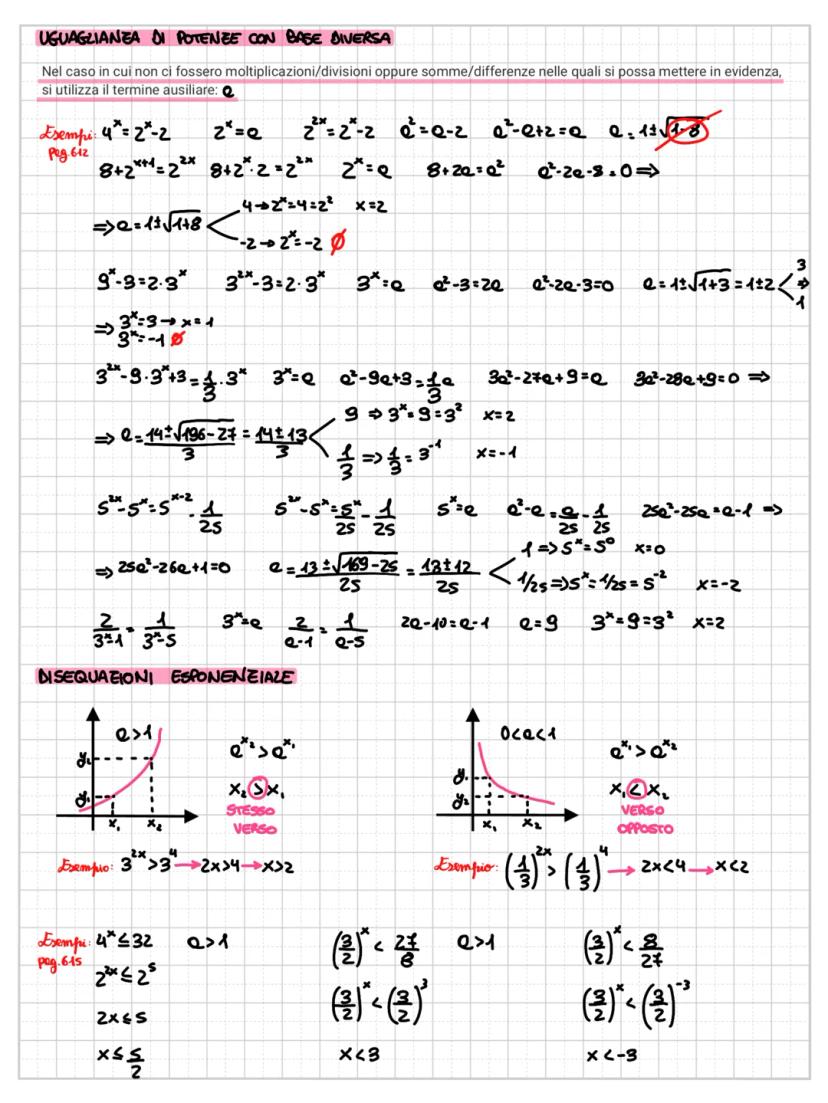 UGUAGLIANZA DI POTENZE CON BASE DIVERSA
Nel caso in cui non ci fossero moltiplicazioni/divisioni oppure somme/differenze nelle quali si possa mettere in evidenza,
si utilizza il termine ausiliare: a
Esempi: 4^x=2^x-2 2^x=a 2^2x=2^x-2 a²=a-2 a²-a+2=a a=1±√1-8
pag.612
8+2^x+1=2^2x 8+2^x·2=2^2x 2^x=a 8+2a=a² a²-2a-8=0 ⇒
⇒ a=1±√1+8 4→2^x=4=2² x=2
-2→2^x=-2 ∅
9^x-3=2·3^x 3^2x-3=2·3^x 3^x=a a²-3=2a a²-2a-3=0 a=1±√1+3=1±2 3 ⇒ 1
⇒ 3^x=3→x=1
3^x=-1 ∅
3^2x-9·3^x+3=1/3·3^x 3^x=a a²-9a+3=1/3a 3a²-27a+9=a 3a²-28a+9=0 ⇒
⇒ a=14±√196-27/3=14±13/3 9⇒3^x=9=3² x=2
1/3⇒1/3=3^-1 x=-1
5^2x-5^x=5^x-2-1/25 5^2x-5^x=5^x/25-1/25 5^x=a a²-a=a/25-1/25 25a²-25a=a-1 ⇒
⇒ 25a²-26a+1=0 a=13±√169-25/25=13±12/25 1⇒5^x=5^0 x=0
1/25⇒5^x=1/25=5^-2 x=-2
2/3^x-1=1/3^x-5 3^x=a 2/a-1=1/a-5 2a-10=a-1 a=9 3^x=9=3² x=2
DISEQUAZIONI ESPONENZIALE
a>1 y₂ y₁ x₁ x₂
a^x₂>a^x₁
x₂>x₁
STESSO
VERSO
0<a<1 y₁ y₂ x₁ x₂
a^x₁>a^x₂
x₁<x₂
VERSO
OPPOSTO
Esempio: 3^2x>3^4→2x>4→x>2
Esempio: (1/3)^2x>(1/3)^4→2x<4→x<2
Esempi: 4^x≤32 a>1
pag.615
2^2x≤2^5
2x≤5
x≤5/2
(3/2)^x<27/8 a>1
(3/2)^x<(3/2)^3
x<3
(3/2)^x<8/27
(3/2)^x<(3/2)^-3
x<-3